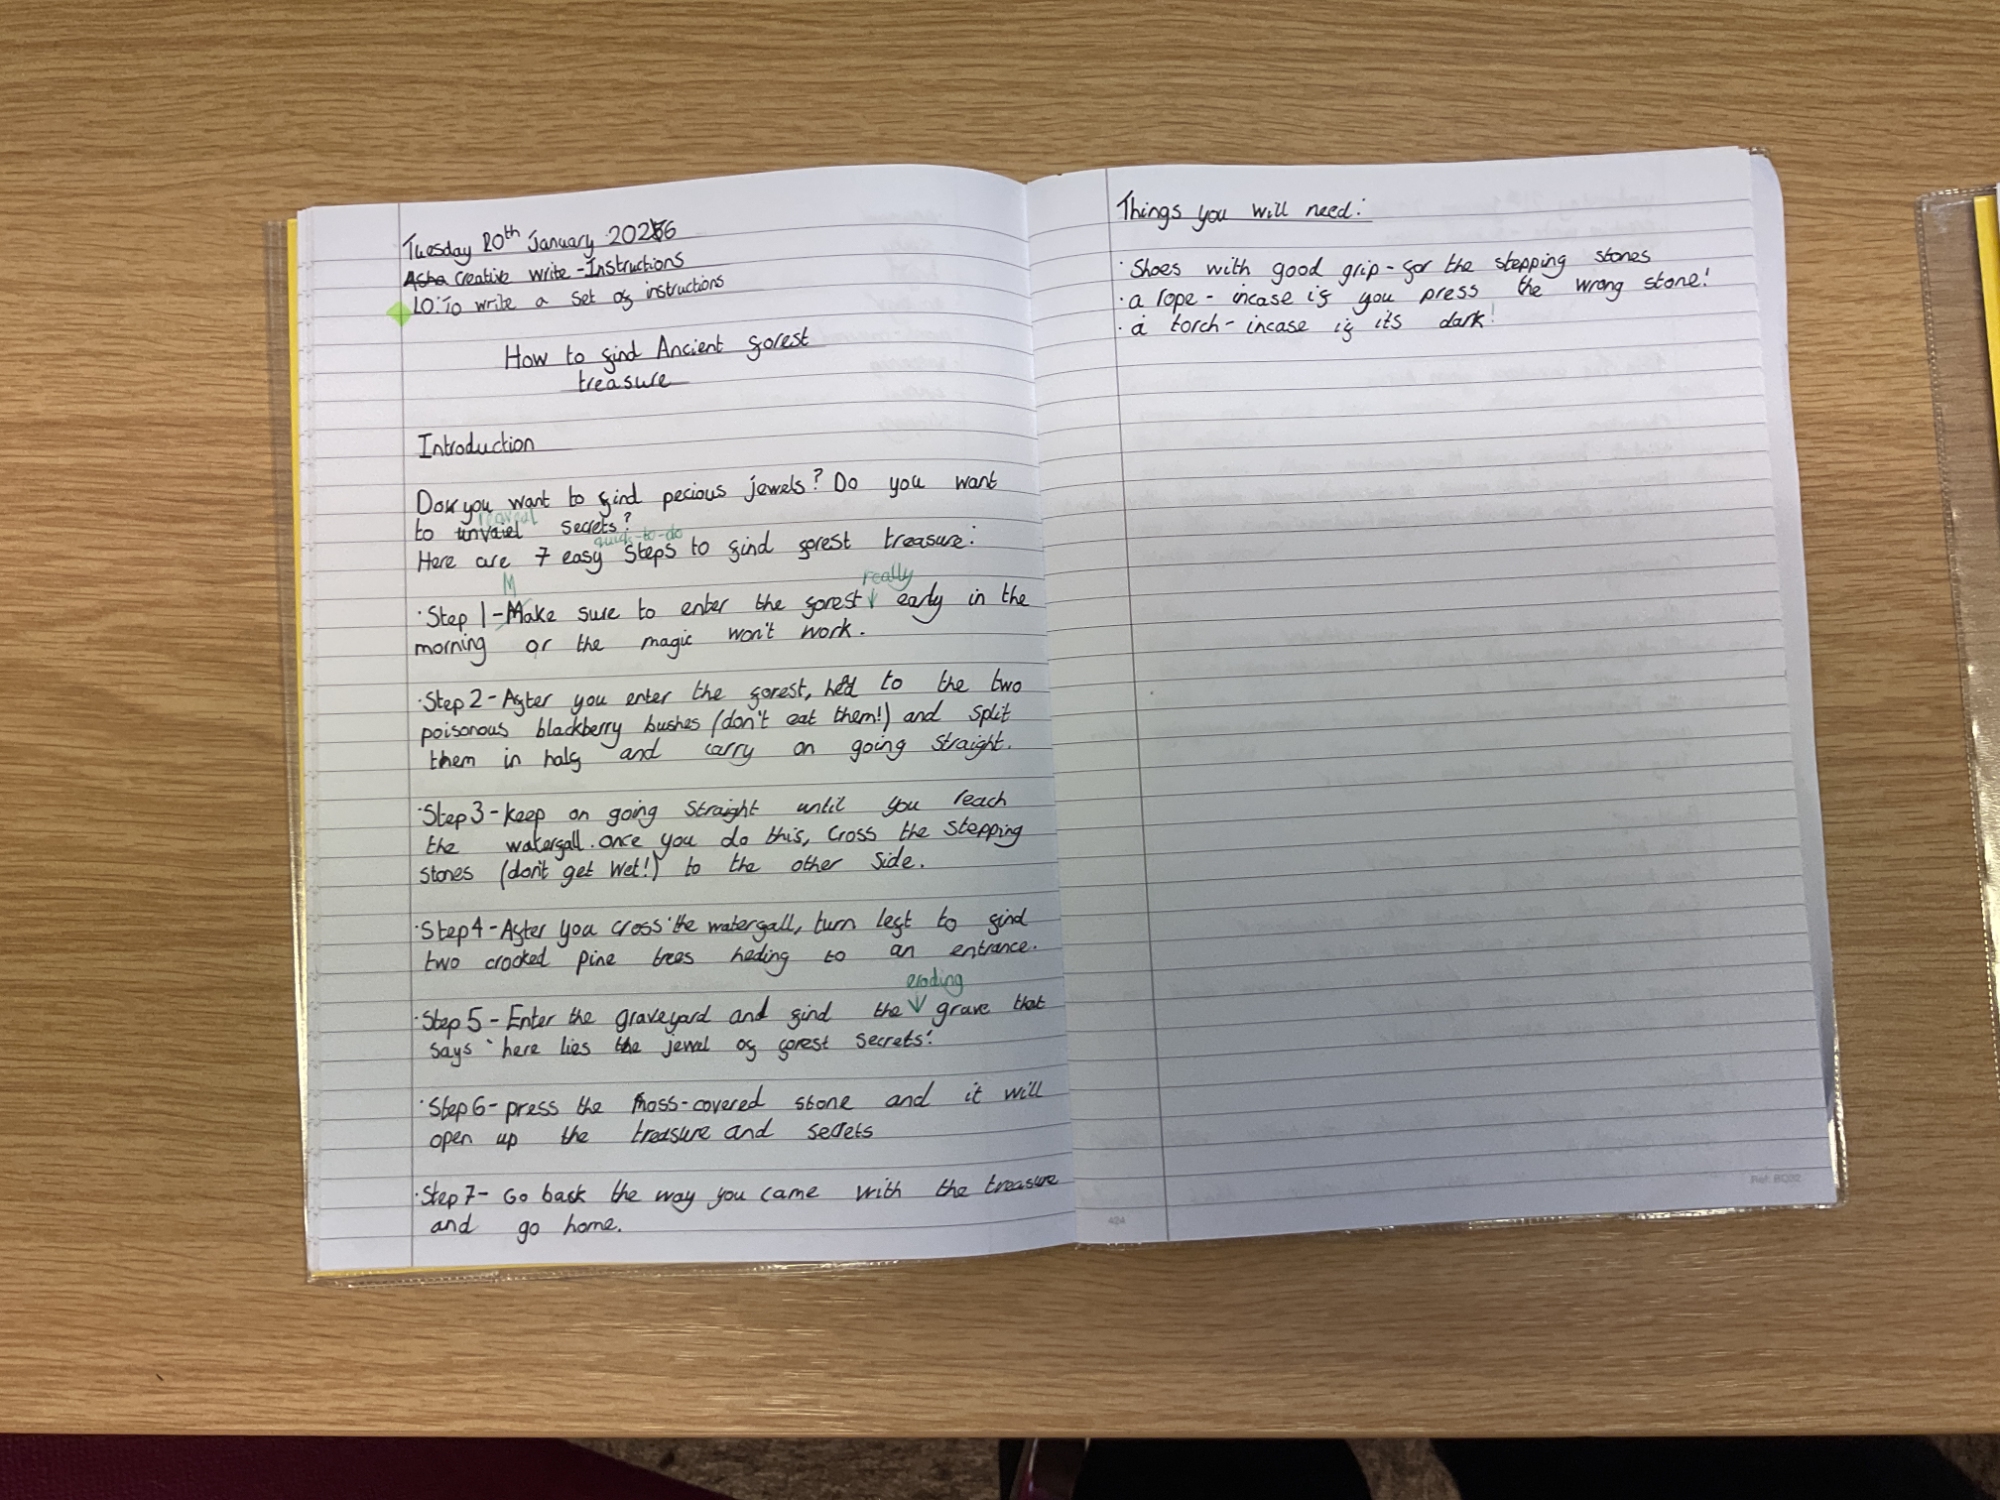 Tuesday 20th January 2026
Asha creative write - Instructions
LO: To write a set of instructions
How to find Ancient forest
treasure
Introduction
Do you want to find pecious jewels? Do you want
reaveal
to unvaiel secrets?
quick-to-do
Here are 7 easy steps to find forest treasure:
M really
· Step 1 - Make sure to enter the forest early in the
morning or the magic won't work.
· Step 2 - After you enter the forest, hed to the two
poisonous blackberry bushes (don't eat them!) and split
them in half and carry on going straight.
· Step 3 - keep on going straight until you reach
the waterfall. once you do this, cross the stepping
stones (don't get wet!) to the other side.
· Step 4 - After you cross the waterfall, turn left to find
two crooked pine trees heding to an entrance.
eroding
· Step 5 - Enter the graveyard and find the grave that
says 'here lies the jewel of forest secrets.'
· Step 6 - press the moss-covered stone and it will
open up the treasure and secrets
· Step 7 - Go back the way you came with the treasure
and go home.
Things you will need:
· Shoes with good grip - for the stepping stones
· a rope - incase if you press the wrong stone!
· a torch - incase if its dark!
424
Ref: BQ22